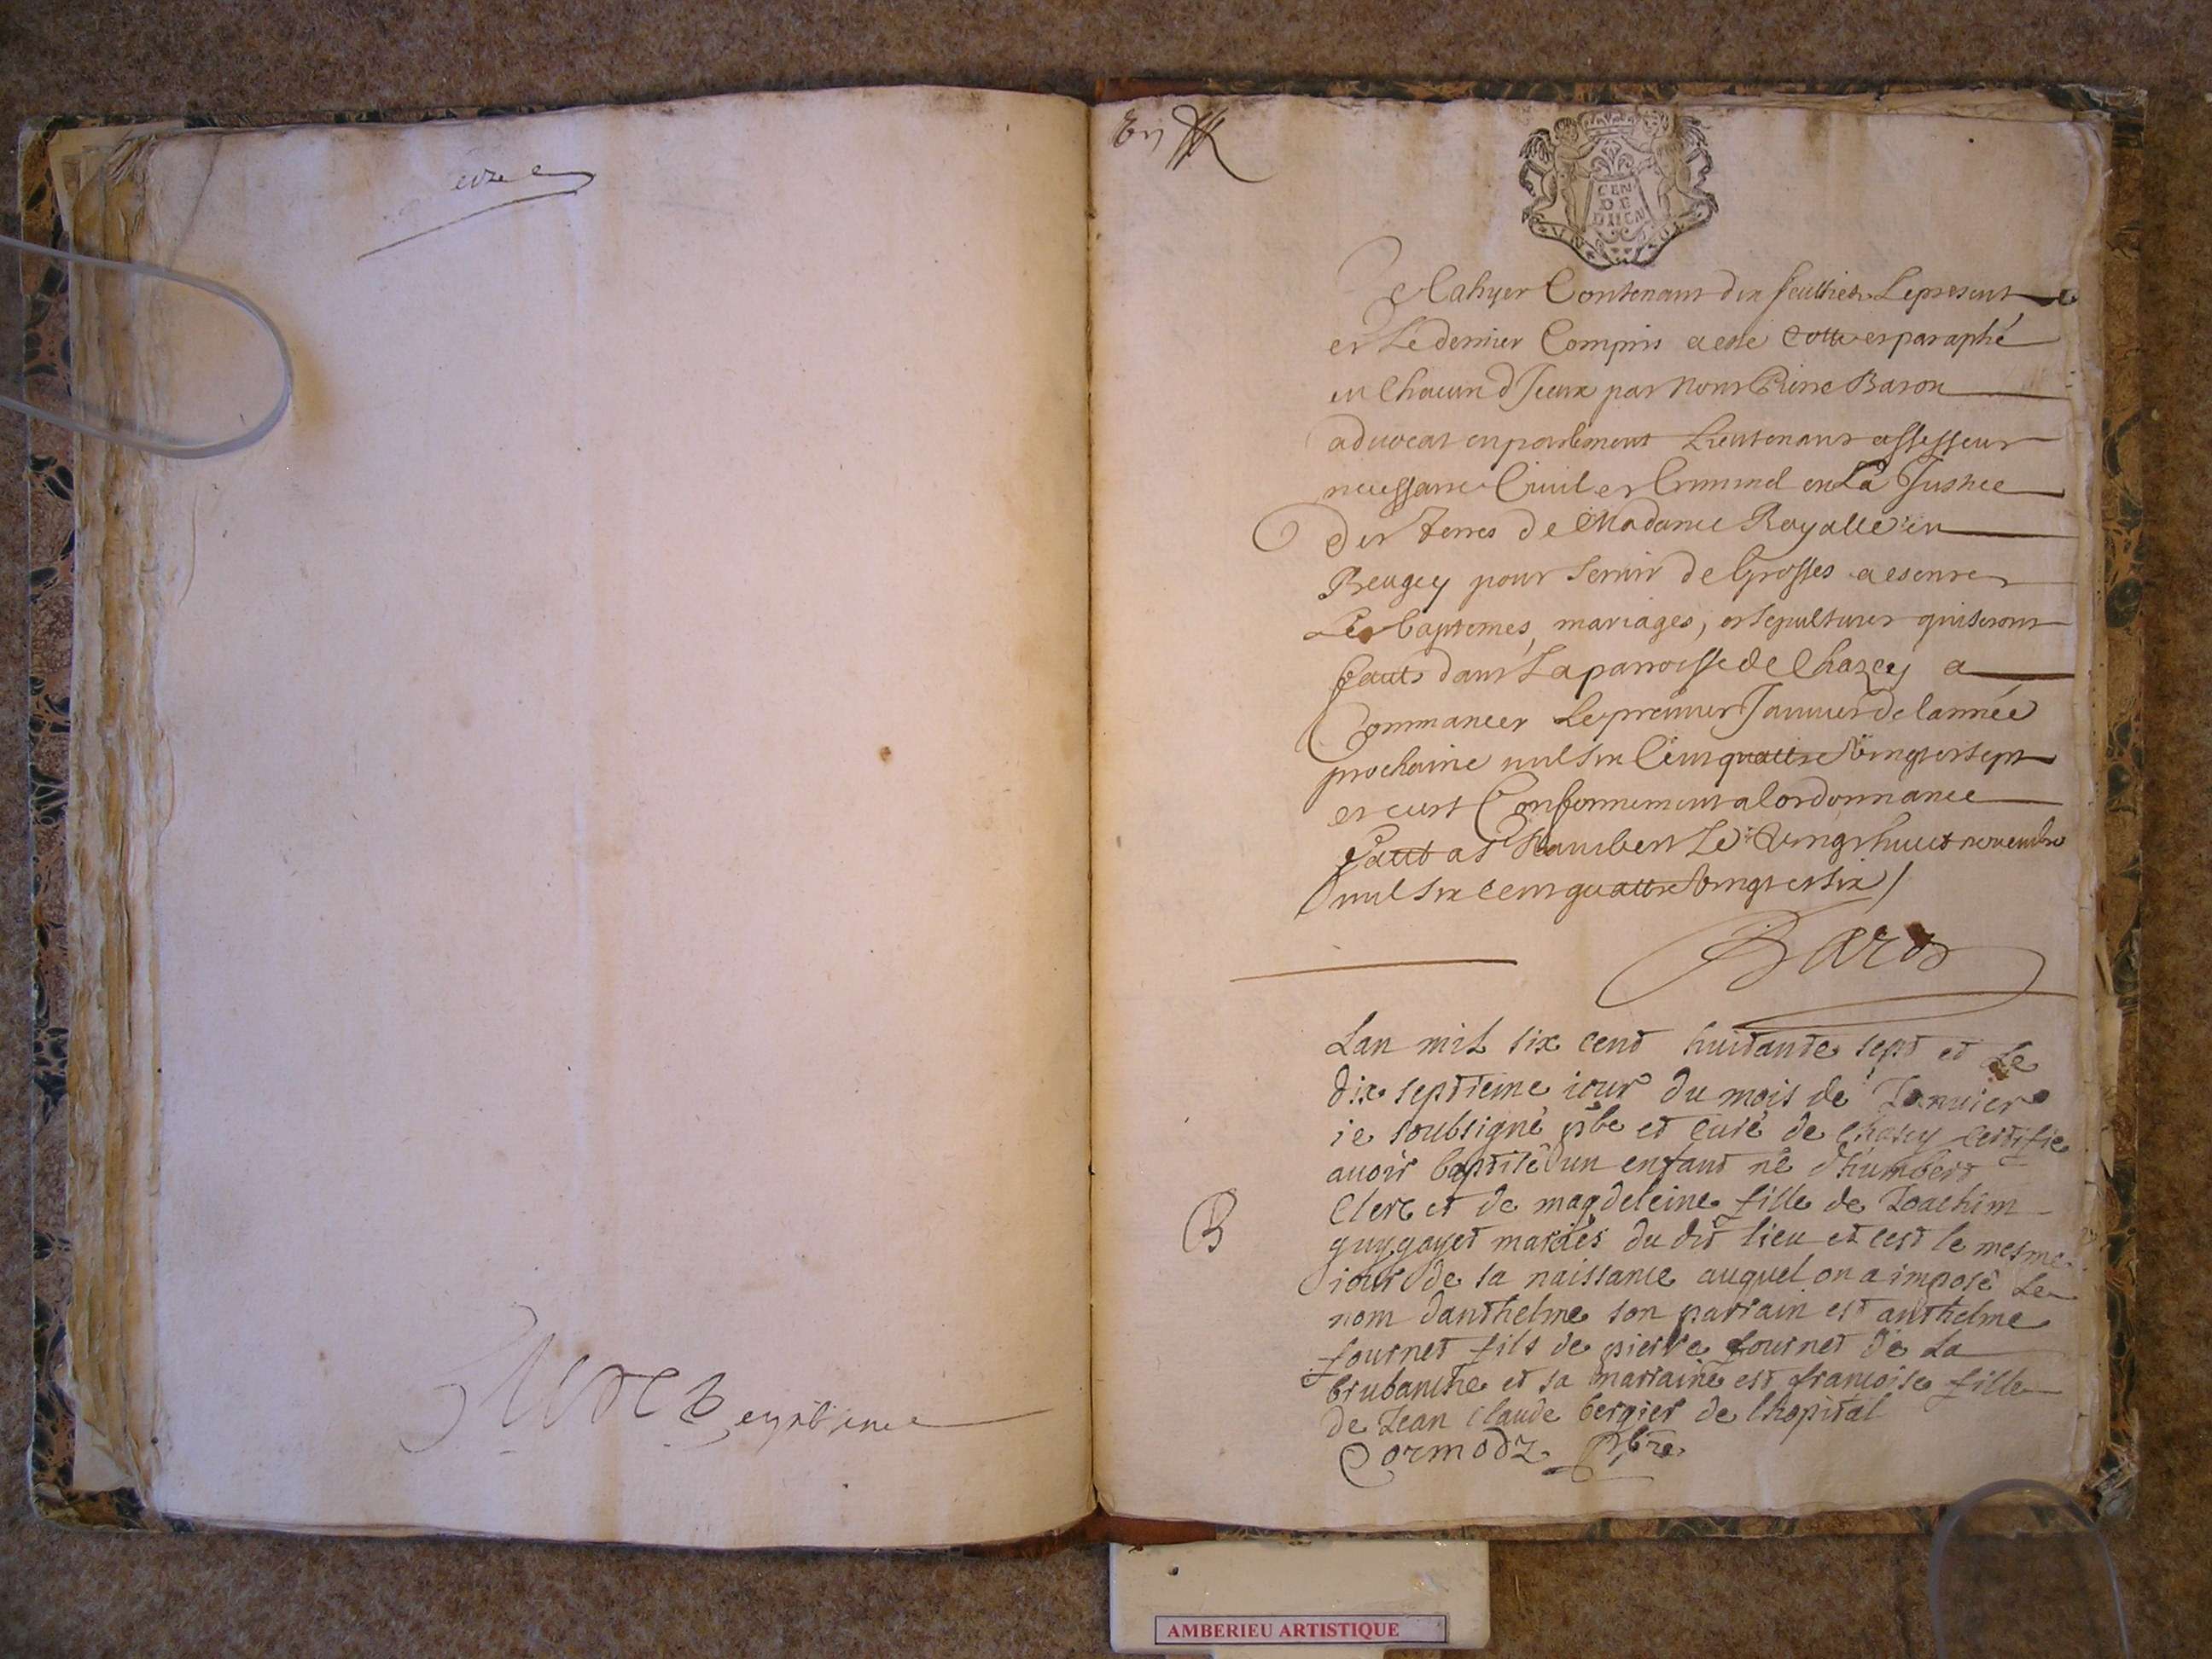 En
CEN
DE
DIJON
UN SOL
Cahyer Contenant dix feullies Lepresent
et Le dernier Compris a este Cotte et paraphé
en Chacun d Jceux par Nous Pierre Baron
advocat en parlement Lieutenant assesseur
necessaire Civil et Criminel en La Justice
des terres de Madame Royalle en
Beugey pour servir de Grosses a escrire
Les baptemes, mariages, et sepultures qui seront
faits dans La parroisse de Chazey a
Commancer Le premier Januier de lannée
prochaine mil six Cent quattre Vingt et sept
et cest Conformement a lordonnance
faict a St Rambert Le Vingt huict novembre
mil six cent quattre Vingt et six /
Baron
Lan mil six cent huitante sept et Le
dix septieme iour du mois de Januier
ie soubsigné pbe et Curé de Chasey certifie
auoir baptisé un enfant né dhumbert
Clerc et de magdeleine fille de Joachim
guygoyet mariés du dit lieu et cest le mesme
B
iour de sa naissance auquel on a imposé Le
nom danthelme son parrain est anthelme
fournet fils de pierre fournet de La
brubanche et sa marraine est francoise fille
de Jean Claude bergier de lhopital
Cormodz pbre
AMBERIEU ARTISTIQUE